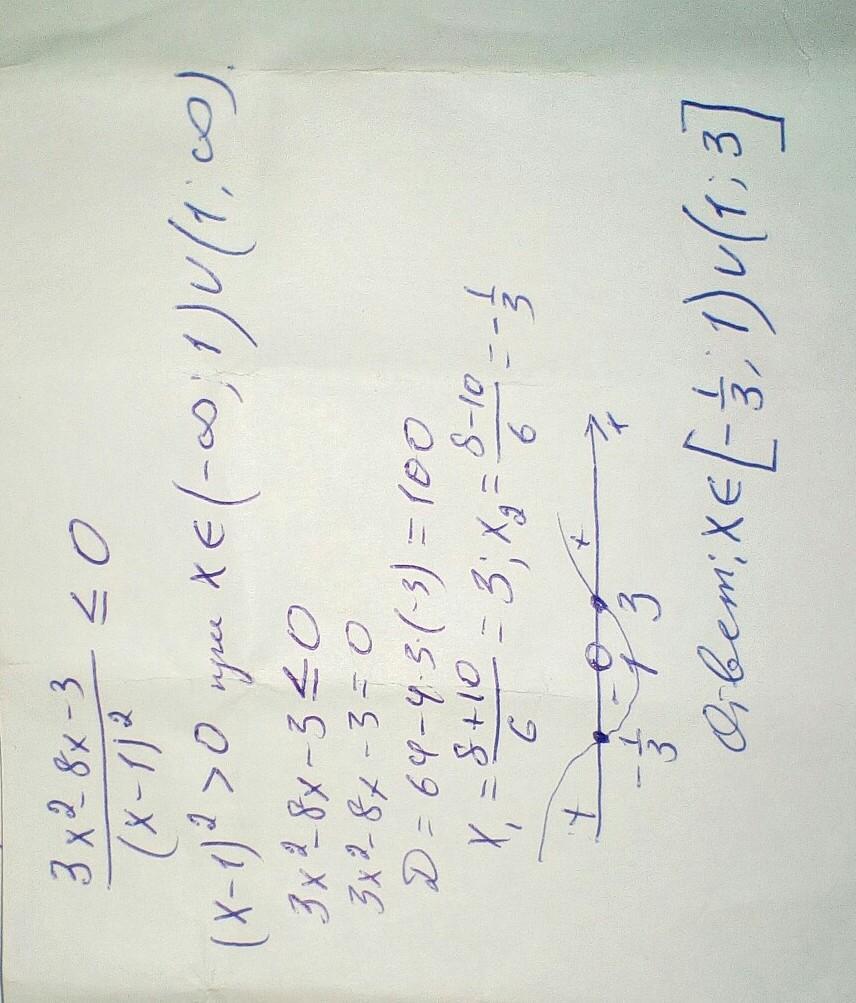 3x²-8x-3 / (x-1)² ≤ 0
(x-1)² >0 при x∈(-∞; 1)∪(1; ∞).
3x²-8x-3≤0
3x²-8x-3=0
D=64-4·3·(-3)=100
x₁ = 8+10 / 6 = 3; x₂ = 8-10 / 6 = -1/3
+ - + x
-1/3 1 3
Ответ: x∈[-1/3; 1)∪(1; 3]